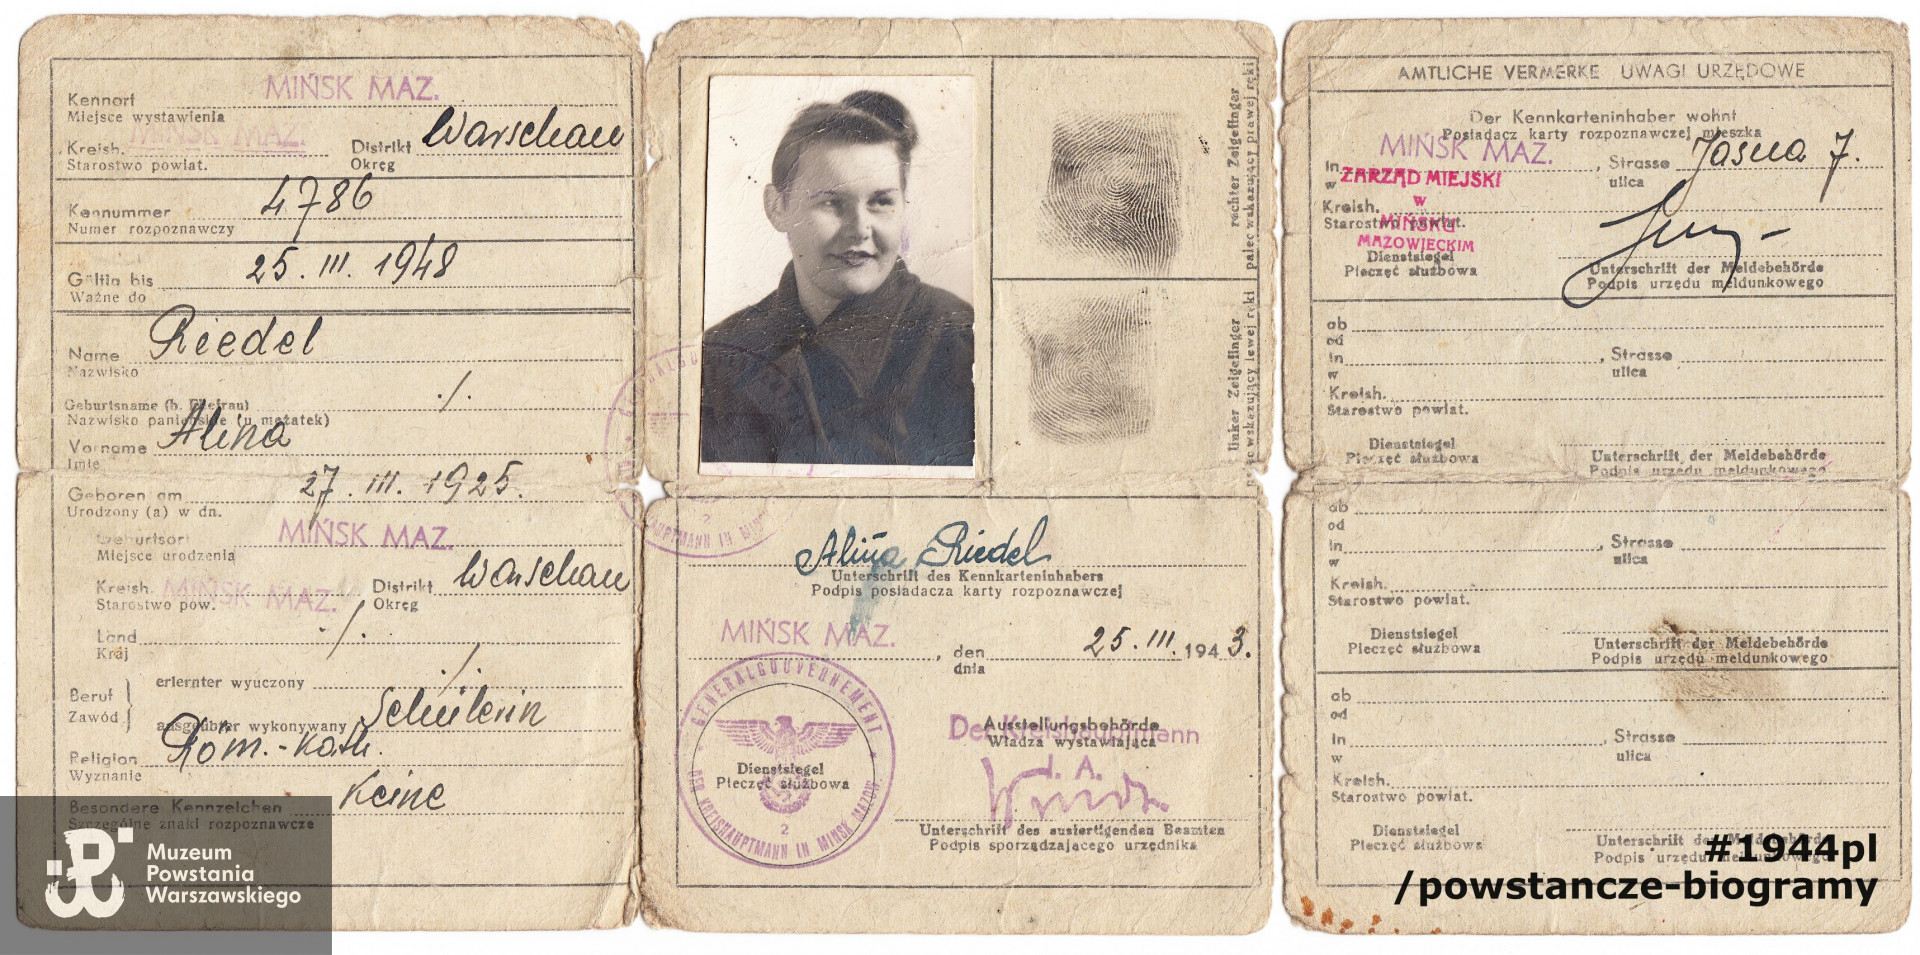 MIŃSK MAZ.
Kennort
Miejsce wystawienia
MIŃSK MAZ.
Kreish. Distrikt Warschau
Starostwo powiat. Okręg
Kennummer 4786
Numer rozpoznawczy
Gültig bis 25. III. 1948
Ważne do
Name Riedel
Nazwisko
Geburtsname (b. Ehefrau) ./.
Nazwisko panieńskie (u mężatek)
Vorname Alina
Imię
Geboren am 27. III. 1925.
Urodzony (a) w dn.
Geburtsort MIŃSK MAZ.
Miejsce urodzenia
Kreish. MIŃSK MAZ. Distrikt Warschau
Starostwo pow. Okręg
Land ./.
Kraj
Beruf erlernter wyuczony ./.
Zawód ausgeübter wykonywany Schülerin
Religion Röm.-Kath.
Wyznanie
Besondere Kennzeichen Keine
Szczególne znaki rozpoznawcze
Muzeum
Powstania
Warszawskiego
rechter Zeigefinger
palec wskazujący prawej ręki
linker Zeigefinger
palec wskazujący lewej ręki
HAUPTMANN IN MINSK
2
Alina Riedel
Unterschrift des Kennkarteninhabers
Podpis posiadacza karty rozpoznawczej
MIŃSK MAZ. , den 25. III. 1943.
dnia
GENERALGOUVERNEMENT
DER KREISHAUPTMANN IN MINSK MAZOW.
2
Dienstsiegel
Pieczęć służbowa
Ausstellungsbehörde
Der Kreishauptmann
Władza wystawiająca
I. A.
Unterschrift des ausfertigenden Beamten
Podpis sporządzającego urzędnika
AMTLICHE VERMERKE UWAGI URZĘDOWE
Der Kennkarteninhaber wohnt
Posiadacz karty rozpoznawczej mieszka
MIŃSK MAZ.
in , Strasse Jasna 7.
w ulica
ZARZĄD MIEJSKI
w
MIŃSKU
MAZOWIECKIM
Kreish.
Starostwo powiat.
Dienstsiegel Unterschrift der Meldebehörde
Pieczęć służbowa Podpis urzędu meldunkowego
ab
od
in , Strasse
w ulica
Kreish.
Starostwo powiat.
Dienstsiegel Unterschrift der Meldebehörde
Pieczęć służbowa Podpis urzędu meldunkowego
ab
od
in , Strasse
w ulica
Kreish.
Starostwo powiat.
Dienstsiegel Unterschrift der Meldebehörde
Pieczęć służbowa Podpis urzędu meldunkowego
ab
od
in , Strasse
w ulica
Kreish.
Starostwo powiat.
Dienstsiegel Unterschrift der Meldebehörde
Pieczęć służbowa Podpis urzędu meldunkowego
#1944pl
/powstancze-biogramy